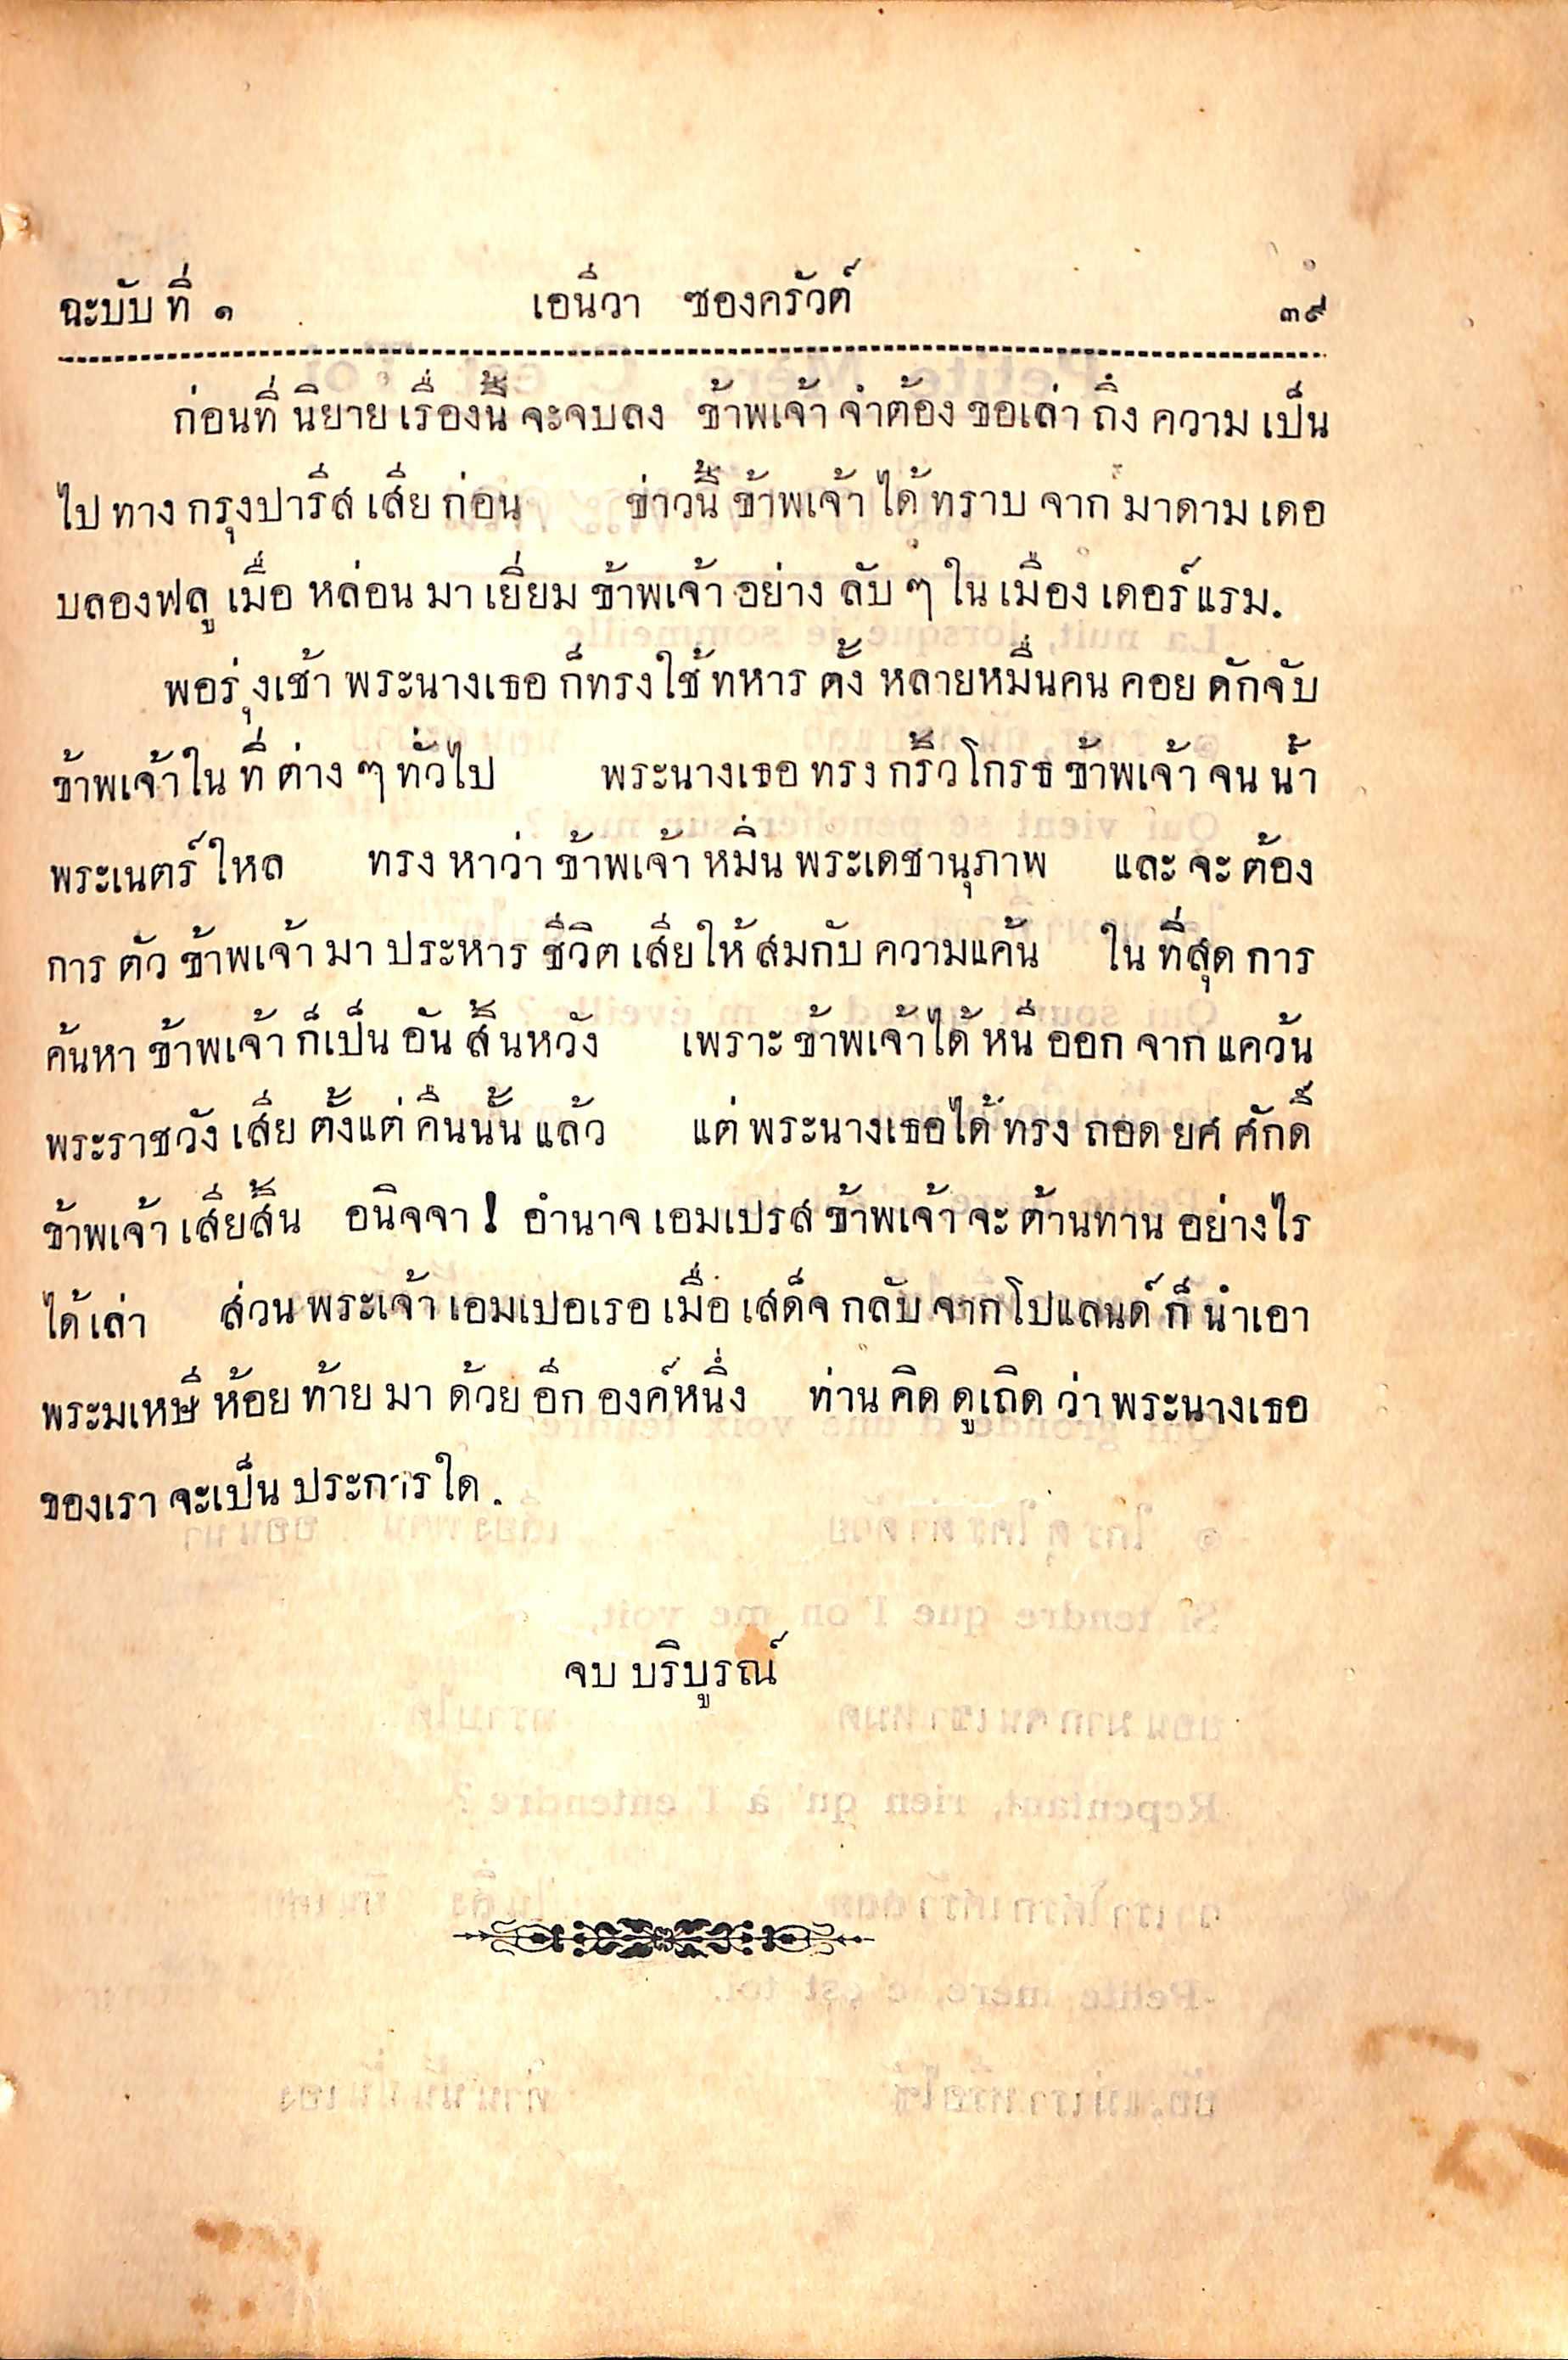 ฉะบับ ที่ ๑ เอนีวา ซองครัวด์ ๓๙
ก่อนที่ นิยาย เรื่องนี้ จะจบลง ข้าพเจ้า จำต้อง ขอเล่า ถึง ความ เป็น
ไป ทาง กรุงปารีส เสีย ก่อน ข่าวนี้ ข้าพเจ้า ได้ ทราบ จาก มาดาม เดอ
บลองฟลู เมื่อ หล่อน มา เยี่ยม ข้าพเจ้า อย่าง ลับ ๆ ใน เมือง เดอร์แรม.
พอรุ่งเช้า พระนางเธอ ก็ทรงใช้ ทหาร ตั้ง หลายหมื่นคน คอย ดักจับ
ข้าพเจ้าใน ที่ ต่าง ๆ ทั่วไป พระนางเธอ ทรง กริ้วโกรธ ข้าพเจ้า จน น้ำ
พระเนตร์ ใหล ทรง หาว่า ข้าพเจ้า หมิ่น พระเดชานุภาพ และ จะ ต้อง
การ ตัว ข้าพเจ้า มา ประหาร ชีวิต เสียให้ สมกับ ความแค้น ใน ที่สุด การ
ค้นหา ข้าพเจ้า ก็เป็น อัน สิ้นหวัง เพราะ ข้าพเจ้าได้ หนี ออก จาก แคว้น
พระราชวัง เสีย ตั้งแต่ คืนนั้น แล้ว แต่ พระนางเธอได้ ทรง ถอด ยศ ศักดิ์
ข้าพเจ้า เสียสิ้น อนิจจา! อำนาจ เอมเปรส ข้าพเจ้า จะ ต้านทาน อย่างไร
ได้ เล่า ส่วน พระเจ้า เอมเปอเรอ เมื่อ เสด็จ กลับ จากโปแลนด์ ก็ นำเอา
พระมเหษี ห้อย ท้าย มา ด้วย อีก องค์หนึ่ง ท่าน คิด ดูเถิด ว่า พระนางเธอ
ของเรา จะเป็น ประการ ใด.
จบ บริบูรณ์